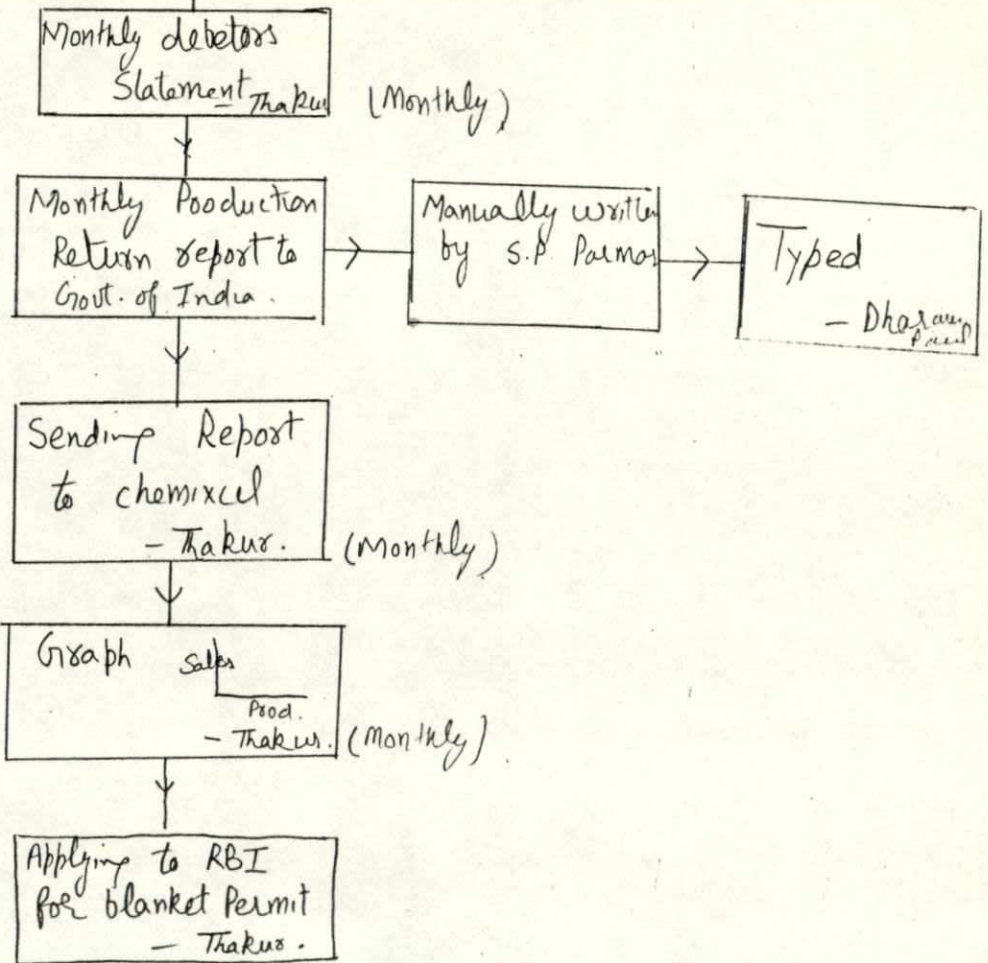 Monthly debetors
Statement Thakur
(Monthly)
Monthly Pooduction
Return report to
Govt. of India.
Manually written
by S.P. Parmar
Typed
- Dharam
Sending Report
to chemixcel
- Thakur.
(Monthly)
Graph Sales
Prod.
- Thakur.
(Monthly)
Applying to RBI
for blanket Permit
- Thakur.